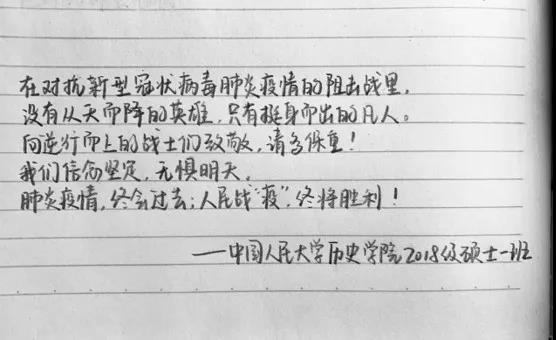 在对抗新型冠状病毒肺炎疫情的阻击战里,
没有从天而降的英雄,只有挺身而出的凡人。
向逆行而上的战士们致敬,请多保重!
我们信念坚定,无惧明天,
肺炎疫情,终会过去;人民战“疫”,终将胜利!
——中国人民大学历史学院2018级硕士一班